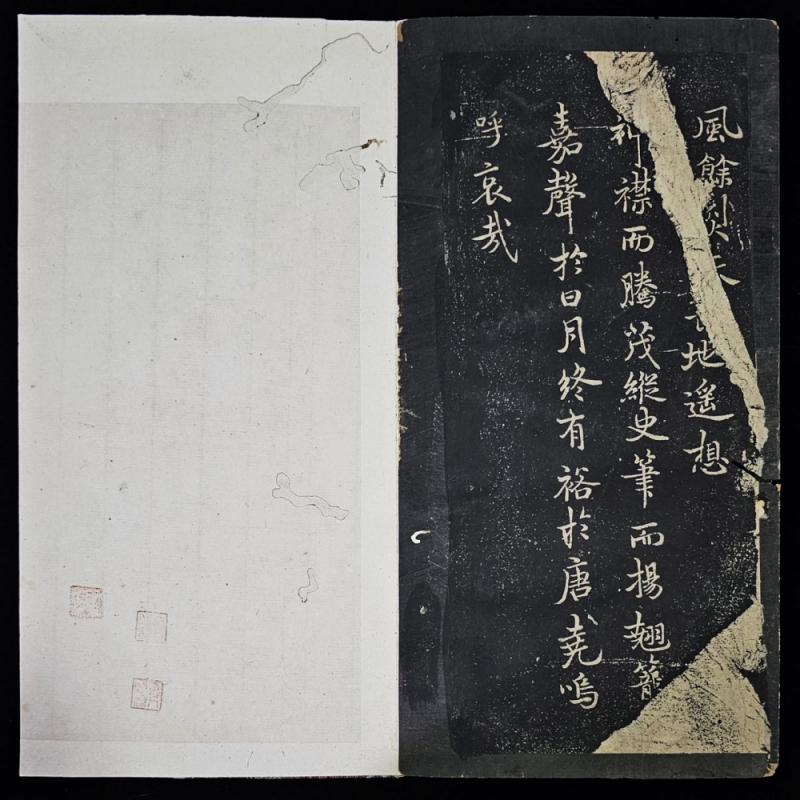 風餘烈天長地遥想
神襟而騰茂縱史筆而揚翹籥
嘉聲於日月終有裕於唐堯嗚
呼哀哉